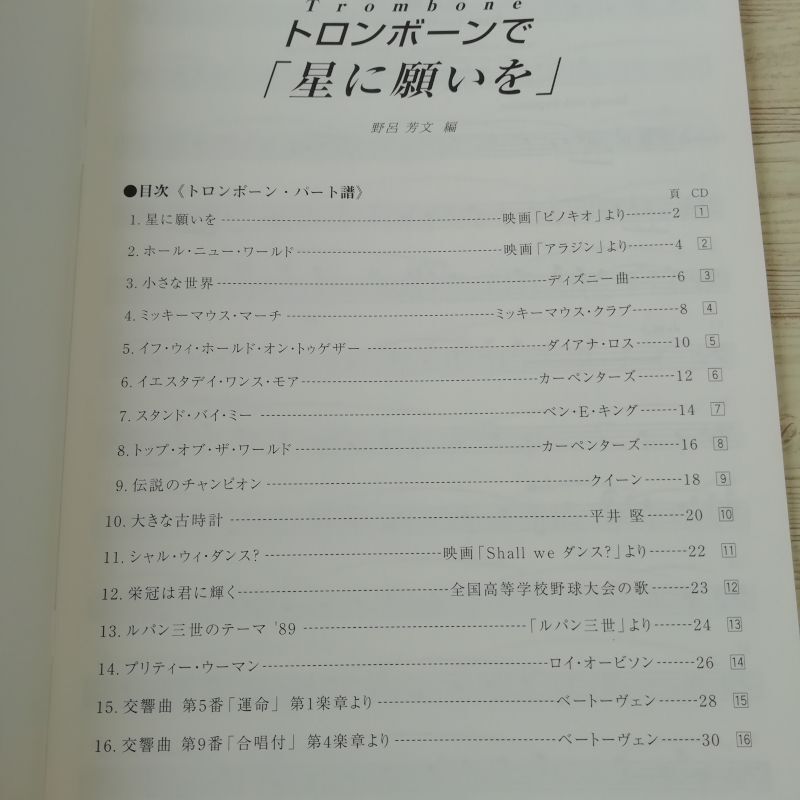 Trombone
トロンボーンで
「星に願いを」
野呂 芳文 編
●目次《トロンボーン・パート譜》 頁 CD
1. 星に願いを 映画「ピノキオ」より 2 1
2. ホール・ニュー・ワールド 映画「アラジン」より 4 2
3. 小さな世界 ディズニー曲 6 3
4. ミッキーマウス・マーチ ミッキーマウス・クラブ 8 4
5. イフ・ウィ・ホールド・オン・トゥゲザー ダイアナ・ロス 10 5
6. イエスタデイ・ワンス・モア カーペンターズ 12 6
7. スタンド・バイ・ミー ベン・E・キング 14 7
8. トップ・オブ・ザ・ワールド カーペンターズ 16 8
9. 伝説のチャンピオン クイーン 18 9
10. 大きな古時計 平井 堅 20 10
11. シャル・ウィ・ダンス? 映画「Shall we ダンス?」より 22 11
12. 栄冠は君に輝く 全国高等学校野球大会の歌 23 12
13. ルパン三世のテーマ '89 「ルパン三世」より 24 13
14. プリティー・ウーマン ロイ・オービソン 26 14
15. 交響曲 第5番「運命」 第1楽章より ベートーヴェン 28 15
16. 交響曲 第9番「合唱付」 第4楽章より ベートーヴェン 30 16